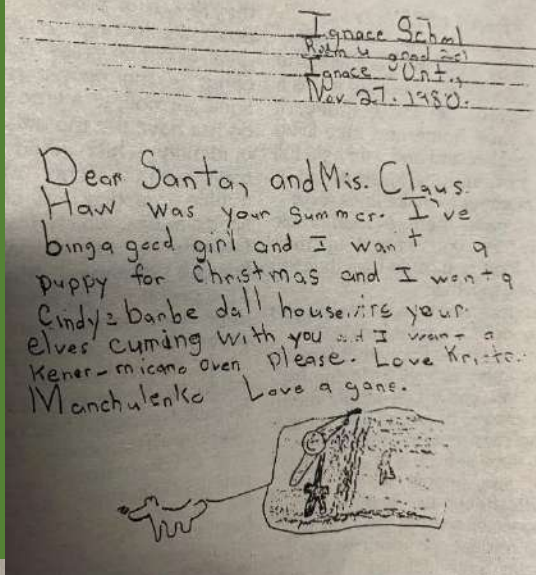 Ignace School
Room 4 grad 2
Ignace Ont.,
Nov 27. 1980.
Dear Santa, and Mis. Claus.
Haw was your summer. I've
bing a good girl and I wan't a
puppy for Christmas and I wont a
Cindy's barbe dall house. Are your
elves cuming with you and I want a
Kener-micano oven please. Love Krista.
Manchulenko Love a gane.